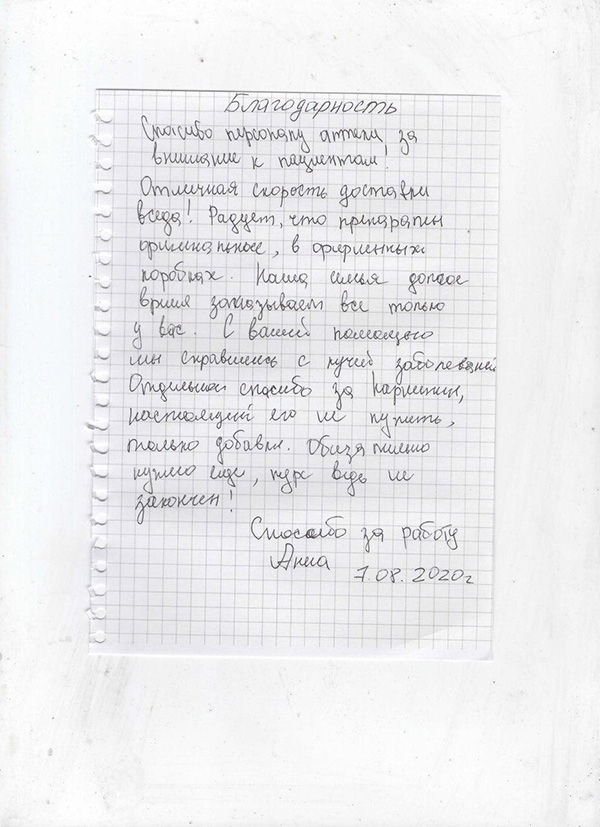 Благодарность
Спасибо персоналу аптеки за
внимание к пациентам!
Отличная скорость доставки
всегда! Радует, что препараты
оригинальные, в фирменных
коробках. Наша семья долгое
время заказываем все только
у вас. С вашей помощью
мы справились с кучей заболеваний
Отдельное спасибо за Карнитин,
настоящий его не купить,
только добавки. Обязательно
нужно еще, курс ведь не
закончен!
Спасибо за работу
Анна
7.08.2020г